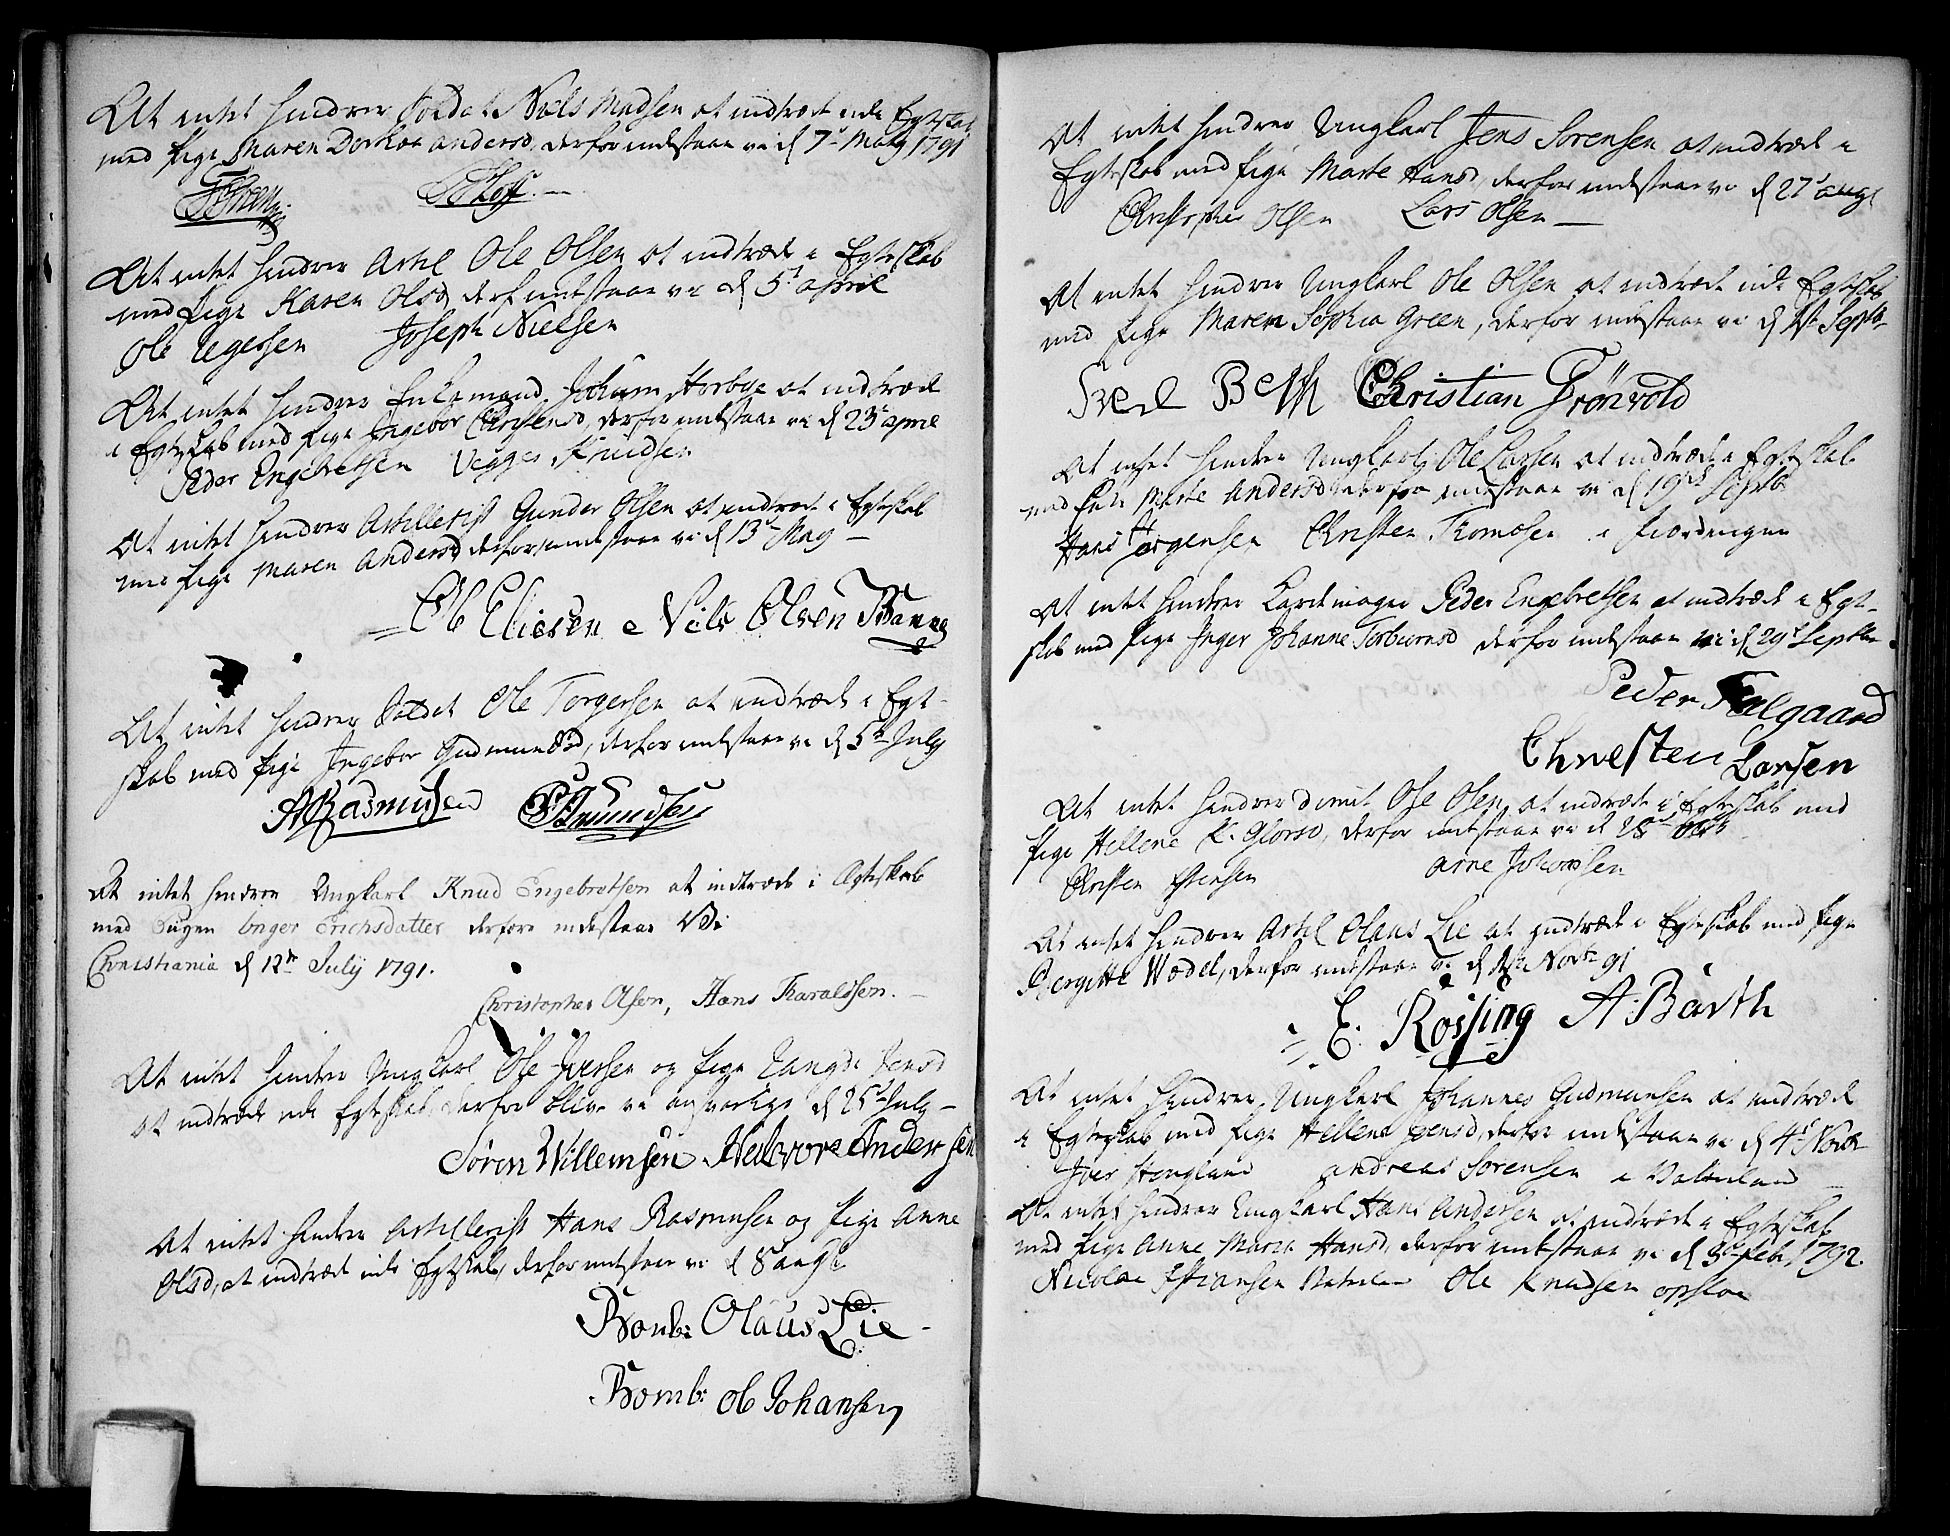 At intet hindrer Soldat Niels Madsen at indtræde udi Egteskab
med Pige Maren Dorthea Andersd, derfor indestaar vi d 7de Martz 1791
At intet hindrer Artil Ole Olsen at indtræde i Egteskab
med Pige Karen Olsd derf indestaar vi d 5t April
Ole Joseph Nielsen
At intet hindrer Enkemand Johum Horbye at indtræde
i Egteskab med Pige Ingebor Christensd, derfor indestaar vi d 23t April
Peder Engebretsen Knudsen
At intet hindrer Artillerist Gunder Olsen at indtræde i Egteskab
med Pige Maren Andersd derfor indestaar vi d 13t May
Ole Eliesen Niels Olsen
At intet hindrer Soldat Ole Torgersen at indtræde i Egt-
skab med Pige Ingebor Gudmundsd, derfor indestaar vi d 5t July
A Rasmusen Amundsen
At intet hindrer Ungkarl Knud Engebretsen at indtræde i Ægteskab
med Pigen Inger Erichsdatter derfore indestaar Vi
Christiania d 12te Julij 1791.
Christopher Olsen, Hans Haraldssen.
At intet hindrer Ungkarl Ole Iversen og Pige Jensd
at indtræde udi Egteskab, derfor bliver vi ansvarlige d 25t July
Søren Willemsen Halvor Andersen
At intet hindrer Artillerist Hans Rasmusen og Pige Anne
Olsd, at indtræde udi Egteskab, derfor indestaar vi d 8 augt
Bomb: Olaus Lie
Bomb: Ole Johansen
At intet hindrer Ungkarl Jens Sørensen at indtræde i
Egteskab med Pige Marte Hansd, derfor indestaar vi d 27t augt
Christopher Olsen Lars Olsen
At intet hindrer Ungkarl Ole Olsen at indtræde udi Egteskab
med Pige Maren Sophia Green, derfor indestaar vi d Septbr
Christian Grönvold
At intet hindrer Ungkarl Ole Larsen at indtræde i Egteskab
med Marte Andersd derfor indestaar vi d 19de Septb
Hans Jørgensen Christen Tomesen i Fierdingen
At intet hindrer Peder Engebretsen at indtræde i Egt-
skab med Pige Inger Johanne Torbiørnsd derfor indestaar vi d 29t Septbr
Peder Falgaard
Chresten Larsen
At intet hindrer Ole Olsen at indtræde i Egteskab med
Pige Hellene derfor indestaar vi d 28
Christen Arne Johansen
At intet hindrer Artil Olaus Lie at indtræde i Egteskab med Pige
Bergitte Wedel, derfor indestaar vi d Novbr 91
E. Røssing A. Barth
At intet hindrer Ungkarl Johannes Gudmunsen at indtræde
i Egteskab med Pige Hellena Jensd, derfor indestaar vi d 4t Novbr
Iver Andreas Sørensen i
At intet hindrer Ungkarl Hans Andersen at indtræde i Egteskab
med Pige Anne Marie Hansd, derfor indestaar vi d 3t Feb 1792.
Nicolai Ole Knudsen opsloe